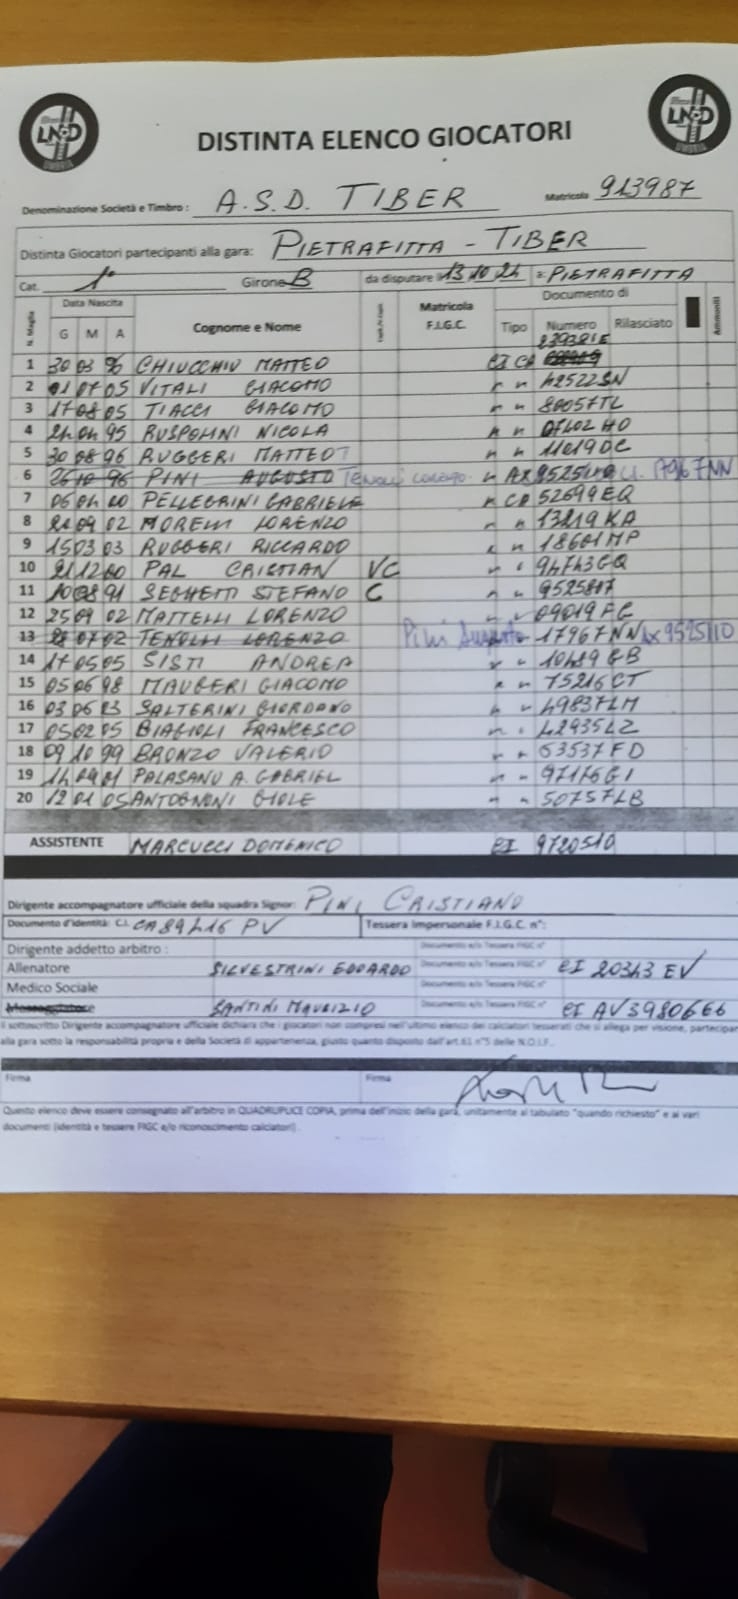 LND LND
UMBRIA
DISTINTA ELENCO GIOCATORI
Denominazione Società e Timbro : A.S.D. TIBER Matricola 913987
Distinta Giocatori partecipanti alla gara: PIETRAFITTA - TIBER
Cat. 1° Girone B da disputare il 13 10 24 a: PIETRAFITTA
N. Maglia Data Nascita Cognome e Nome Matricola F.I.G.C. Documento di Ammoniti
G M A Tipo Numero Rilasciato
1 30 03 96 CHIUCCHIU MATTEO CI CA
2 01 07 05 VITALI GIACOMO " " 42522SN
3 17 08 05 TIACCI GIACOMO " " 80057TL
4 24 04 95 RUSPOLINI NICOLA " " 07402 HO
5 30 08 96 RUGGERI MATTEO " " 11019DC
6 26 10 96 PINI AUGUSTO TENOLLI LORENZO " AX
7 06 04 00 PELLEGRINI GABRIELE " CA 52699EQ
8 09 02 MORELLI LORENZO " " 13219KA
9 15 03 03 RUGGERI RICCARDO " " 18601MP
10 21 12 00 PAL CRISTIAN VC " " 94743GQ
11 10 08 91 SEGHETTI STEFANO C " " 9525817
12 25 09 02 MATTELLI LORENZO " " 09019FC
13 28 07 02 TENOLLI LORENZO Pini Augusto 17967NN AX 9525110
14 17 05 05 SISTI ANDREA " " 10489GB
15 05 06 98 MAUGERI GIACOMO " " 75216CT
16 03 06 03 SALTERINI GIORDANO " " 49837LM
17 05 02 05 BIAGIOLI FRANCESCO " " 42935LZ
18 09 10 99 BRONZO VALERIO " " 53537FD
19 14 01 PALASANU A. GABRIEL " " 97176GI
20 12 01 05 ANTOGNONI GIOLE " " 50757LB
ASSISTENTE MARCUCCI DOMENICO CI 9720510
Dirigente accompagnatore ufficiale della squadra Signor: PINI CRISTIANO
Documento d'identità: C.I. CA 89416 PV Tessera Impersonale F.I.G.C. n°:
Dirigente addetto arbitro : Documento e/o Tessera FIGC n°
Allenatore SILVESTRINI EDOARDO Documento e/o Tessera FIGC n° CI 20343 EV
Medico Sociale Documento e/o Tessera FIGC n°
Massaggiatore SANTINI MAURIZIO Documento e/o Tessera FIGC n° CI AV3980666
Il sottoscritto Dirigente accompagnatore ufficiale dichiara che i giocatori non compresi nell'ultimo elenco dei calciatori tesserati che si allega per visione, partecipano
alla gara sotto la responsabilità propria e della Società di appartenenza, giusto quanto disposto dall'art.61 n°5 delle N.O.I.F.
Firma Firma
Questo elenco deve essere consegnato all'arbitro in QUADRUPLICE COPIA, prima dell'inizio della gara, unitamente al tabulato "quando richiesto" e ai vari
documenti (identità e tessere FIGC e/o riconoscimento calciatori).